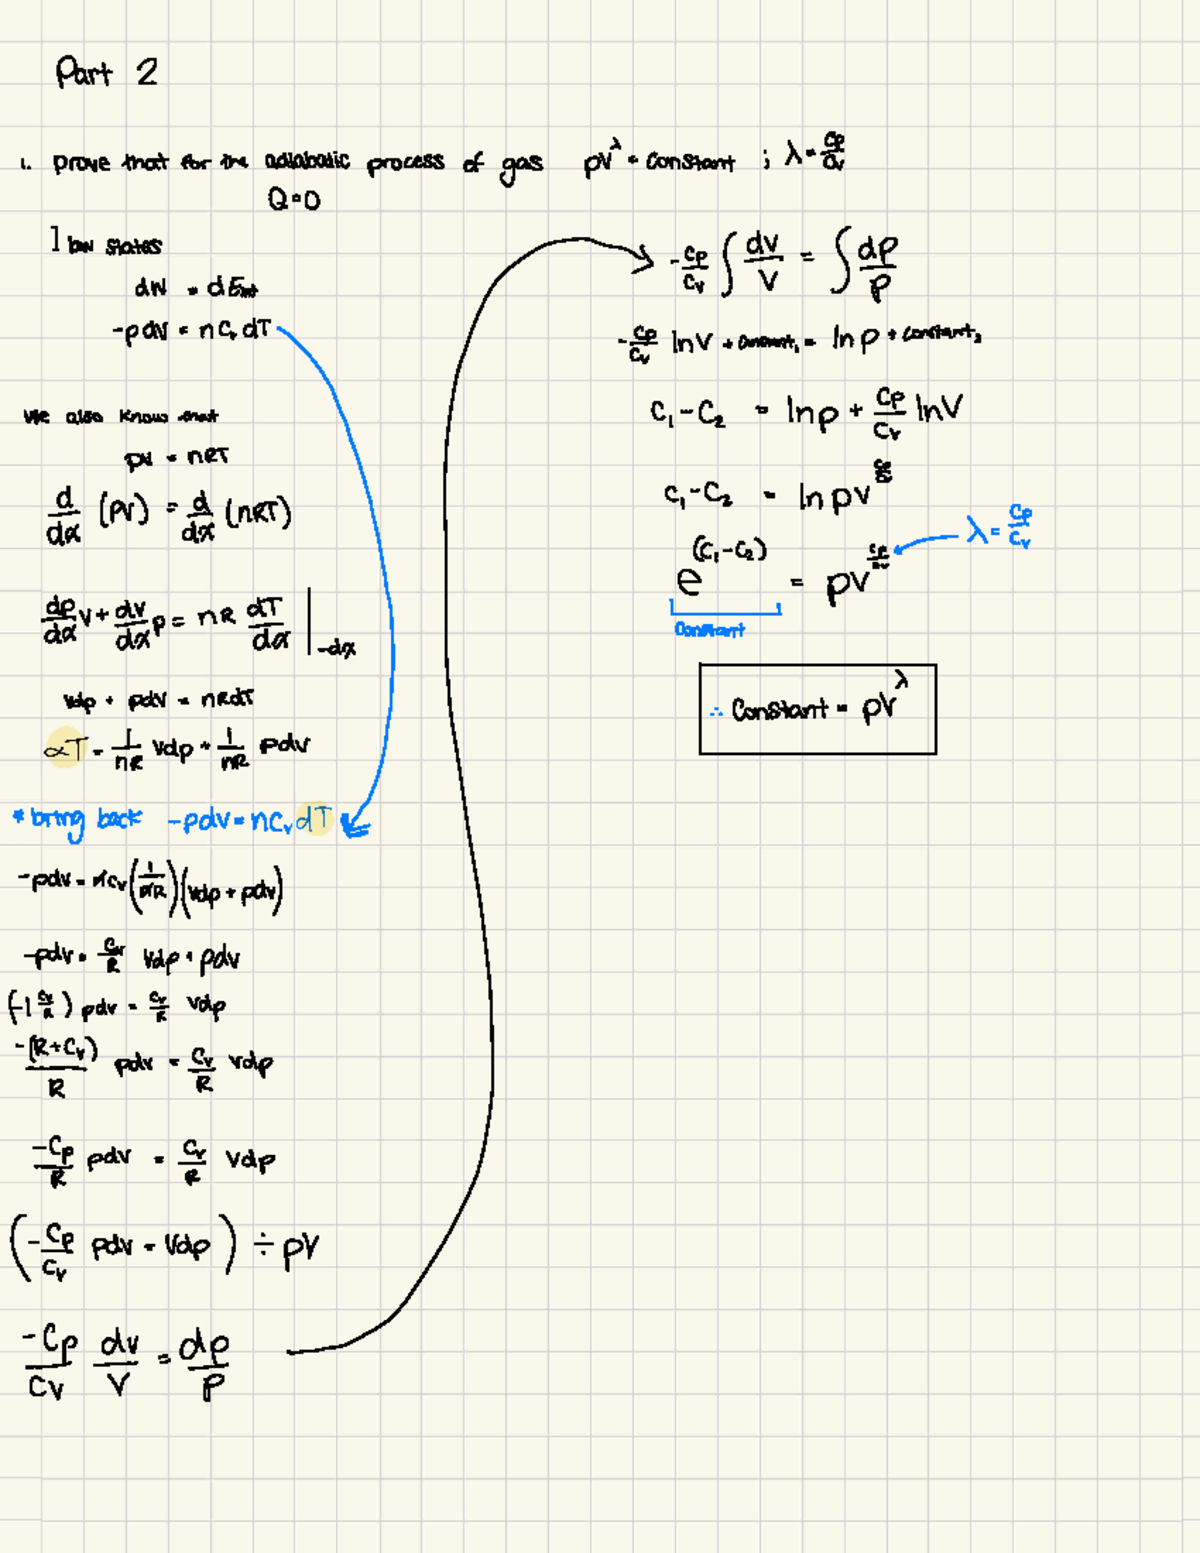 Part 2
1. prove that for the adiabatic process of gas pV^λ = constant ; λ = Cp/Cv
Q=0
1 law states
dW = dEint
-pdV = nCvdT
We also know that
pV = nRT
d/dx (PV) = d/dx (nRT)
dp/dx V + dv/dx P = nR dT/dx |-dx
Vdp + pdV = nRdT
dT = 1/nR Vdp + 1/nR pdV
* bring back -pdv = nCvdT
-pdv = nCv(1/nR)(Vdp + pdv)
-pdv = Cv/R Vdp + pdv
(-1 Cv/R) pdv = Cv/R Vdp
-(R+Cv)/R pdv = Cv/R Vdp
-Cp/R pdv = Cv/R Vdp
(-Cp/Cv pdv = Vdp) ÷ pV
-Cp/Cv dv/V = dp/P
-Cp/Cv ∫ dV/V = ∫ dp/P
-Cp/Cv lnV + constant₁ = lnp + constant₂
C₁-C₂ = lnp + Cp/Cv lnV
C₁-C₂ = ln pV^Cp/Cv
e^(C₁-C₂) = pV^Cp/Cv
λ = Cp/Cv
Constant
∴ Constant = pV^λ